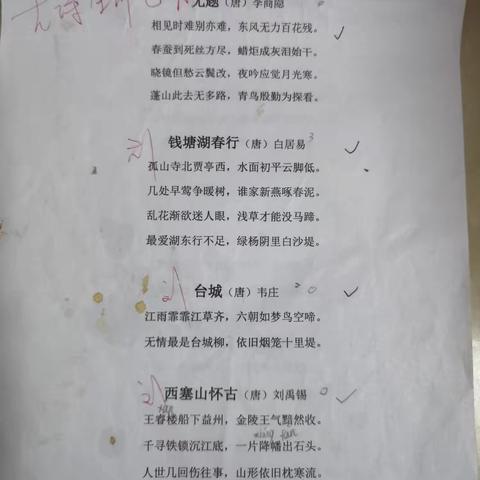 无题（唐）李商隐
相见时难别亦难，东风无力百花残。
春蚕到死丝方尽，蜡炬成灰泪始干。
晓镜但愁云鬓改，夜吟应觉月光寒。
蓬山此去无多路，青鸟殷勤为探看。
钱塘湖春行（唐）白居易
孤山寺北贾亭西，水面初平云脚低。
几处早莺争暖树，谁家新燕啄春泥。
乱花渐欲迷人眼，浅草才能没马蹄。
最爱湖东行不足，绿杨阴里白沙堤。
台城（唐）韦庄
江雨霏霏江草齐，六朝如梦鸟空啼。
无情最是台城柳，依旧烟笼十里堤。
西塞山怀古（唐）刘禹锡
王睿楼船下益州，金陵王气黯然收。
千寻铁锁沉江底，一片降幡出石头。
人世几回伤往事，山形依旧枕寒流。